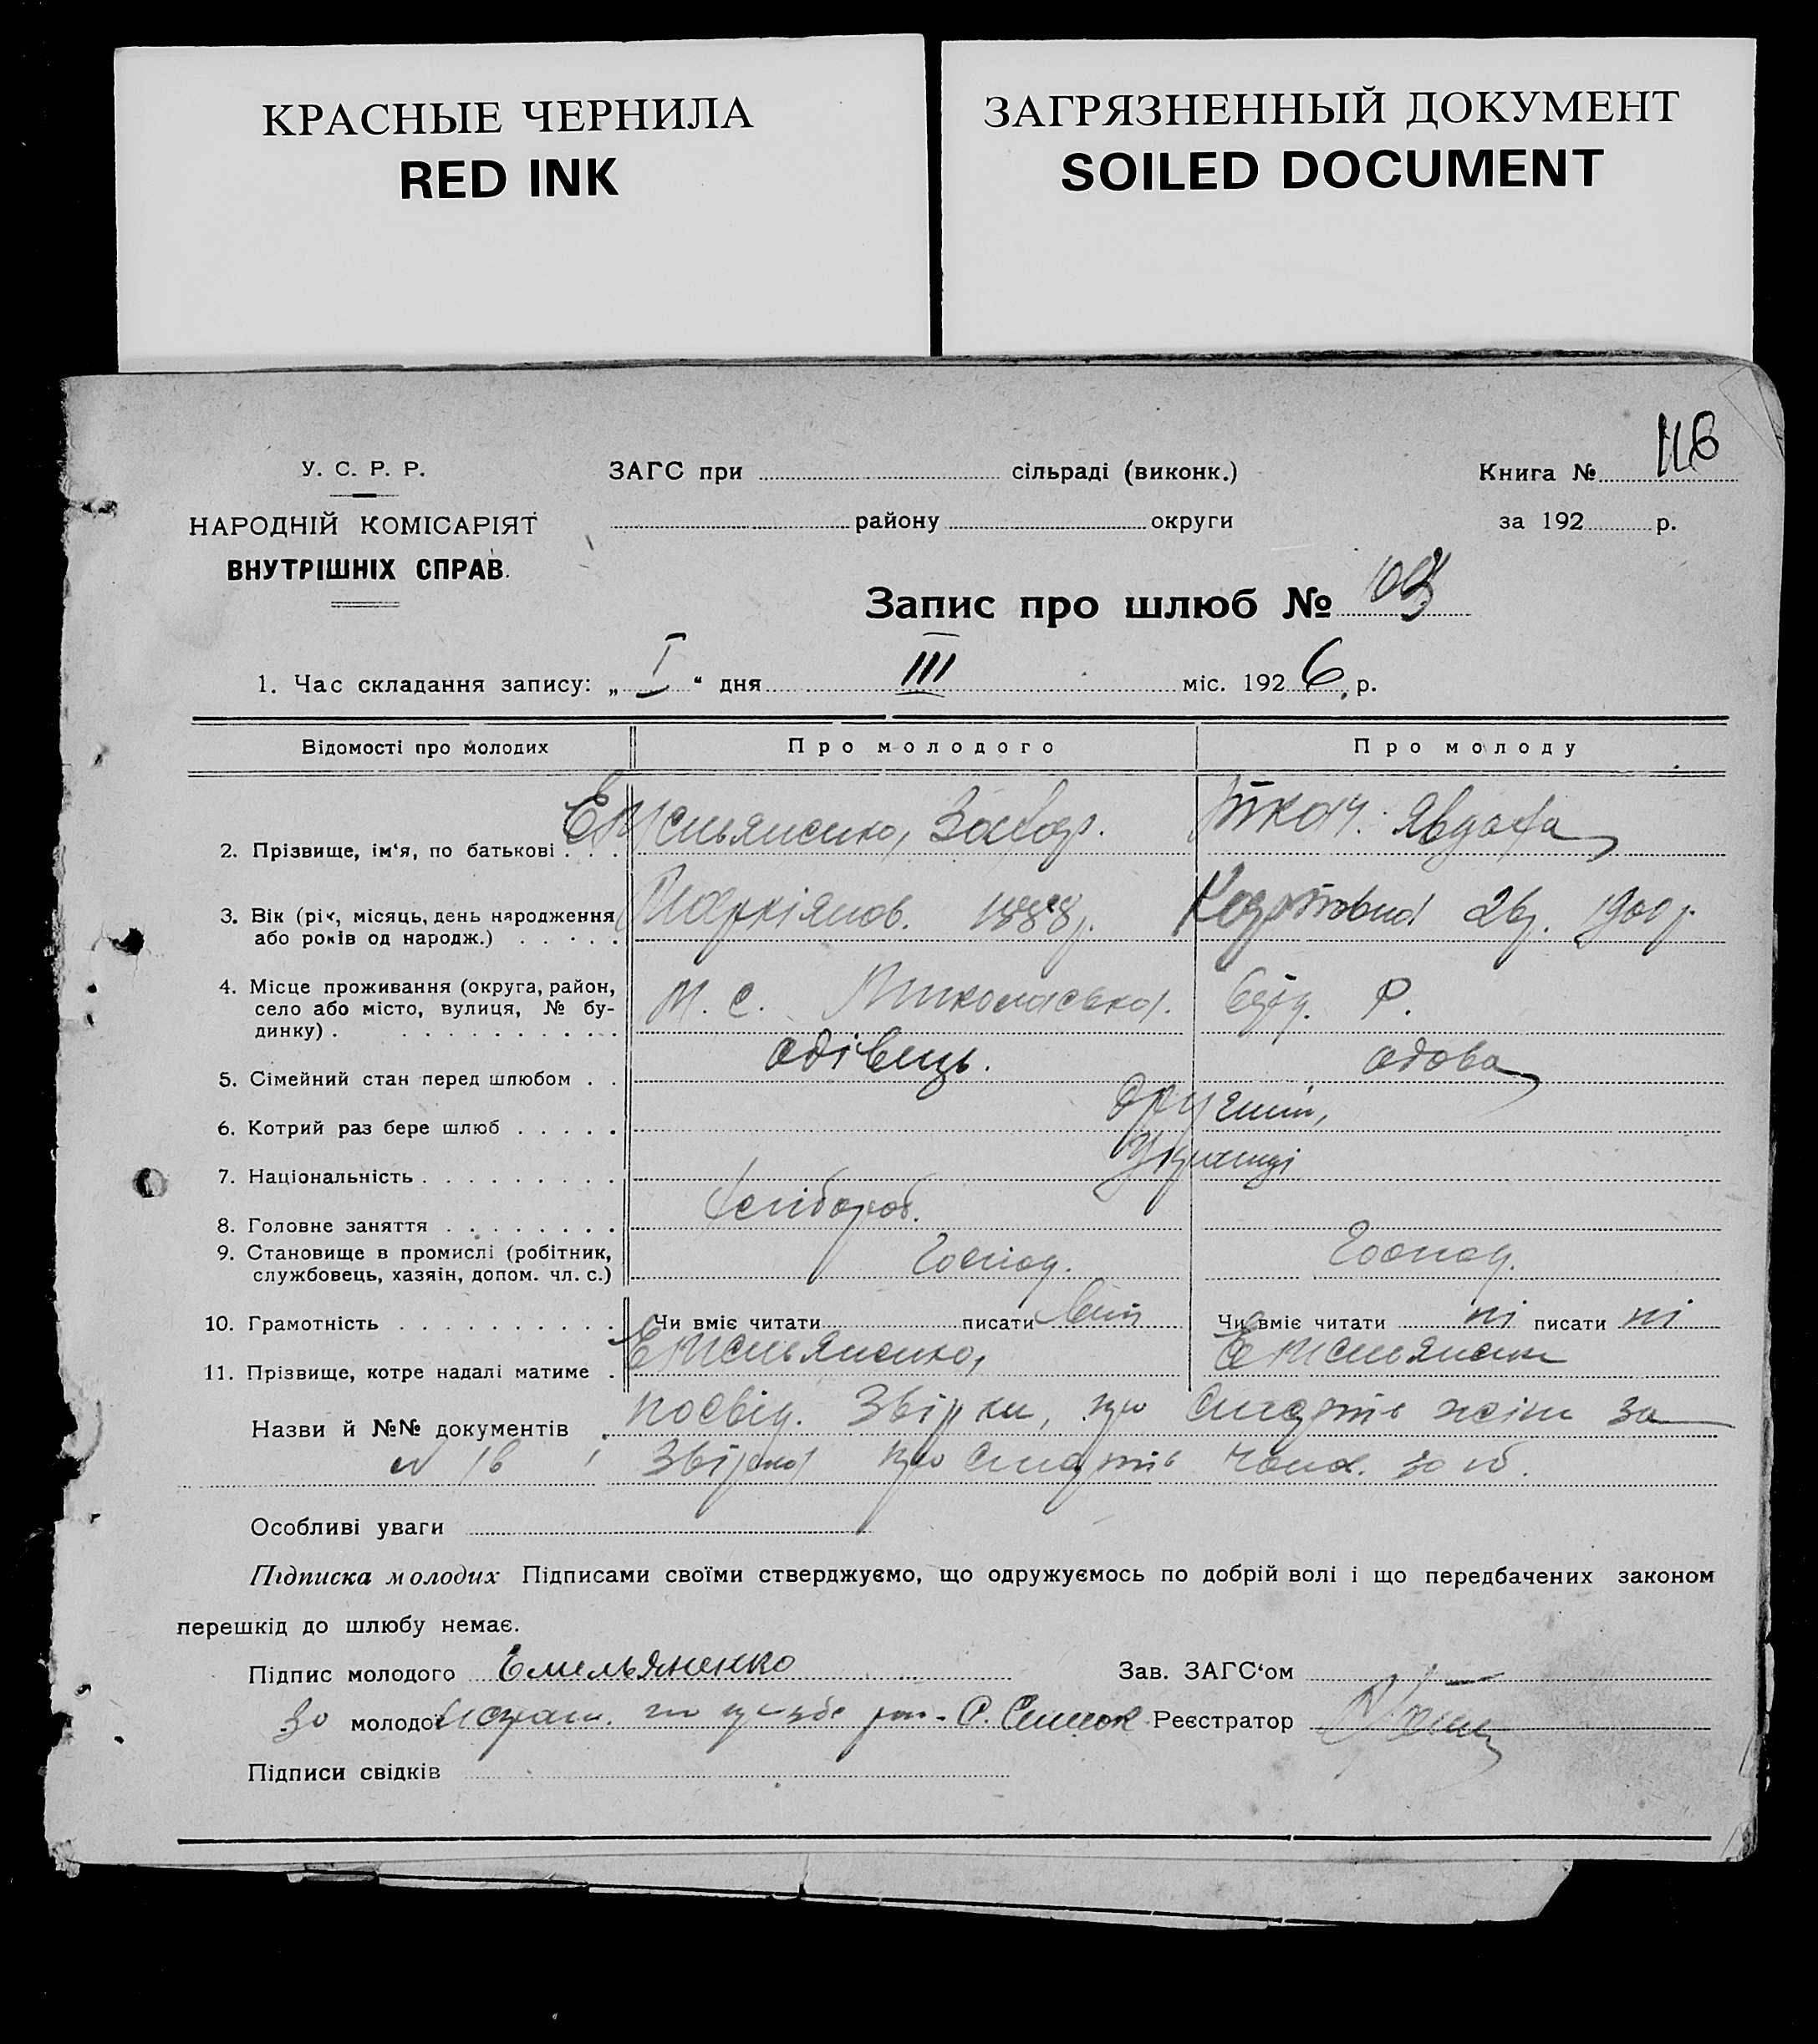 КРАСНЫЕ ЧЕРНИЛА
RED INK
ЗАГРЯЗНЕННЫЙ ДОКУМЕНТ
SOILED DOCUMENT
116
У. С. Р. Р.
НАРОДНІЙ КОМІСАРІЯТ
ВНУТРІШНІХ СПРАВ.
ЗАГС при сільраді (виконк.)
району округи
Книга №
за 192 р.
Запис про шлюб №
1. Час складання запису: „ I “ дня III міс. 192 6 р.
Відомості про молодих Про молодого Про молоду
2. Прізвище, ім‘я, по батькові . . . Емельяненко, Явдоха
3. Вік (рік, місяць, день народження
або років од народж.) . . . . . Маркіянов. 1888 р. 26 р. 1900 р.
4. Місце проживання (округа, район,
село або місто, вулиця, № бу-
динку) . . . . . . . . . . . М. С. Миколаєвка.
5. Сімейний стан перед шлюбом . . одівець. одова
6. Котрий раз бере шлюб . . . . . другий,
7. Національність . . . . . . . . . Українці
8. Головне заняття . . . . . . . . Хлібороб.
9. Становище в промислі (робітник,
службовець, хазяін, допом. чл. с.) Господ. Господ.
10. Грамотність . . . . . . . . . . Чи вміє читати писати вміє Чи вміє читати ні писати ні
11. Прізвище, котре надалі матиме . Емельяненко, Емельяненко
Назви й №№ документів . посвід. Звірки, про смерть жінки за
№ 16 Звірка про смерть чолов. за
Особливі уваги
Підписка молодих Підписами своїми стверджуємо, що одружуємось по добрій волі і що передбачених законом
перешкід до шлюбу немає.
Підпис молодого Емельяненко Зав. ЗАГС‘ом
За молодої Реєстратор
Підписи свідків